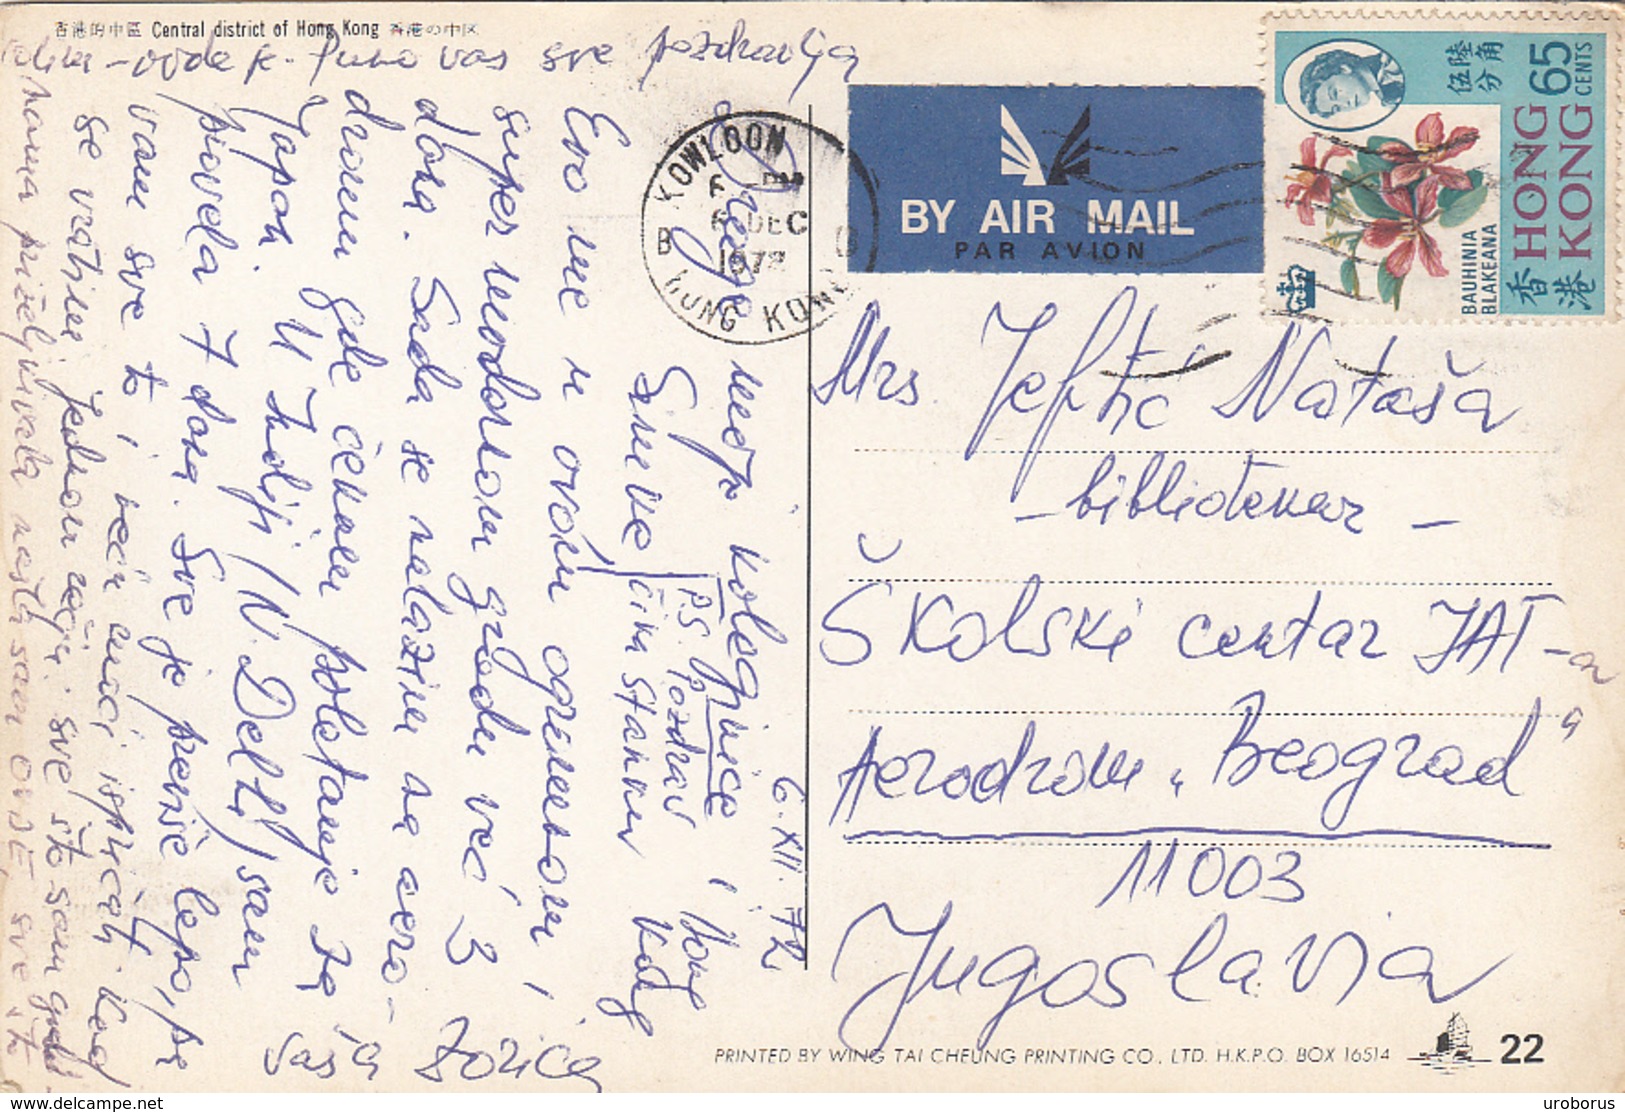 香港的中區 Central district of Hong Kong 香港の中区
6. XII. 72.
Drage moje koleginice i Hong
Simke Kong
Evo me u ovom ogromnom i
super modernom gradu već 3
dana. Sada se nalazim na aero-
dromu gde čekam poletanje za
Japan. U Indiji /N. Delhi/ sam
provela 7 dana. Sve je prelepo, pa
vam sve to i neću moći ispričati. Kad
se vratim jednom
što sam ovde, sve što
ovde je. Puno vas sve pozdravlja
Zorica
P.S. Pozdrav
KOWLOON
6 PM
6 DEC
1972
B
HONG KONG
BY AIR MAIL
PAR AVION
伍陸
分角
65
CENTS
HONG
KONG
香港
BAUHINIA
BLAKEANA
Mrs. Jeftić Nataša
- bibliotekar -
Školski centar JAT-a
Aerodrom "Beograd"
11003
Jugoslavia
PRINTED BY WING TAI CHEUNG PRINTING CO., LTD. H.K.P.O. BOX 16514
22
delcampe.net
uroborus